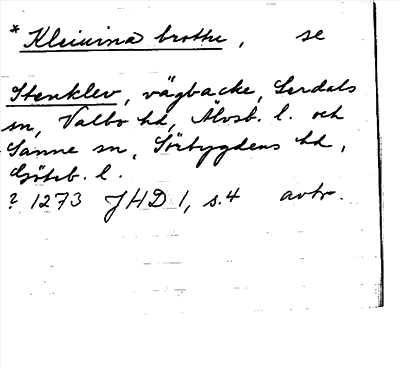 * Kleiuina brothu, se
Stenklev, vägbacke, Lerdals
sn, Valbo hd, Älvsb. l. och
Sanne sn, Sörbygdens hd,
Göteb. l.
? 1273 JHD 1, s. 4 avtr.